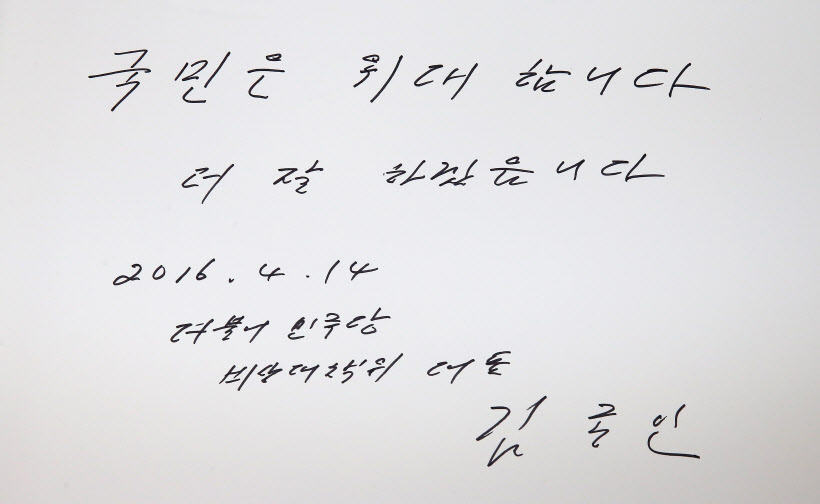 국민은 위대 합니다
더 잘 하겠읍니다
2016. 4. 14
더불어 민주당
비상대책위 대표
김 종 인